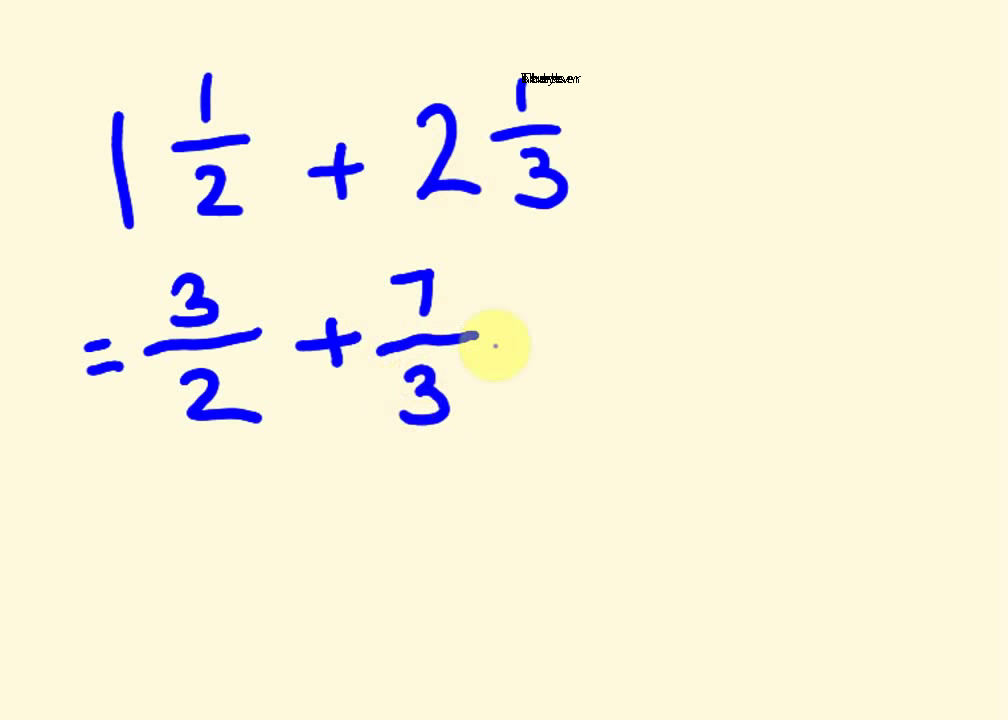 1 1/2 + 2 1/3
= 3/2 + 7/3